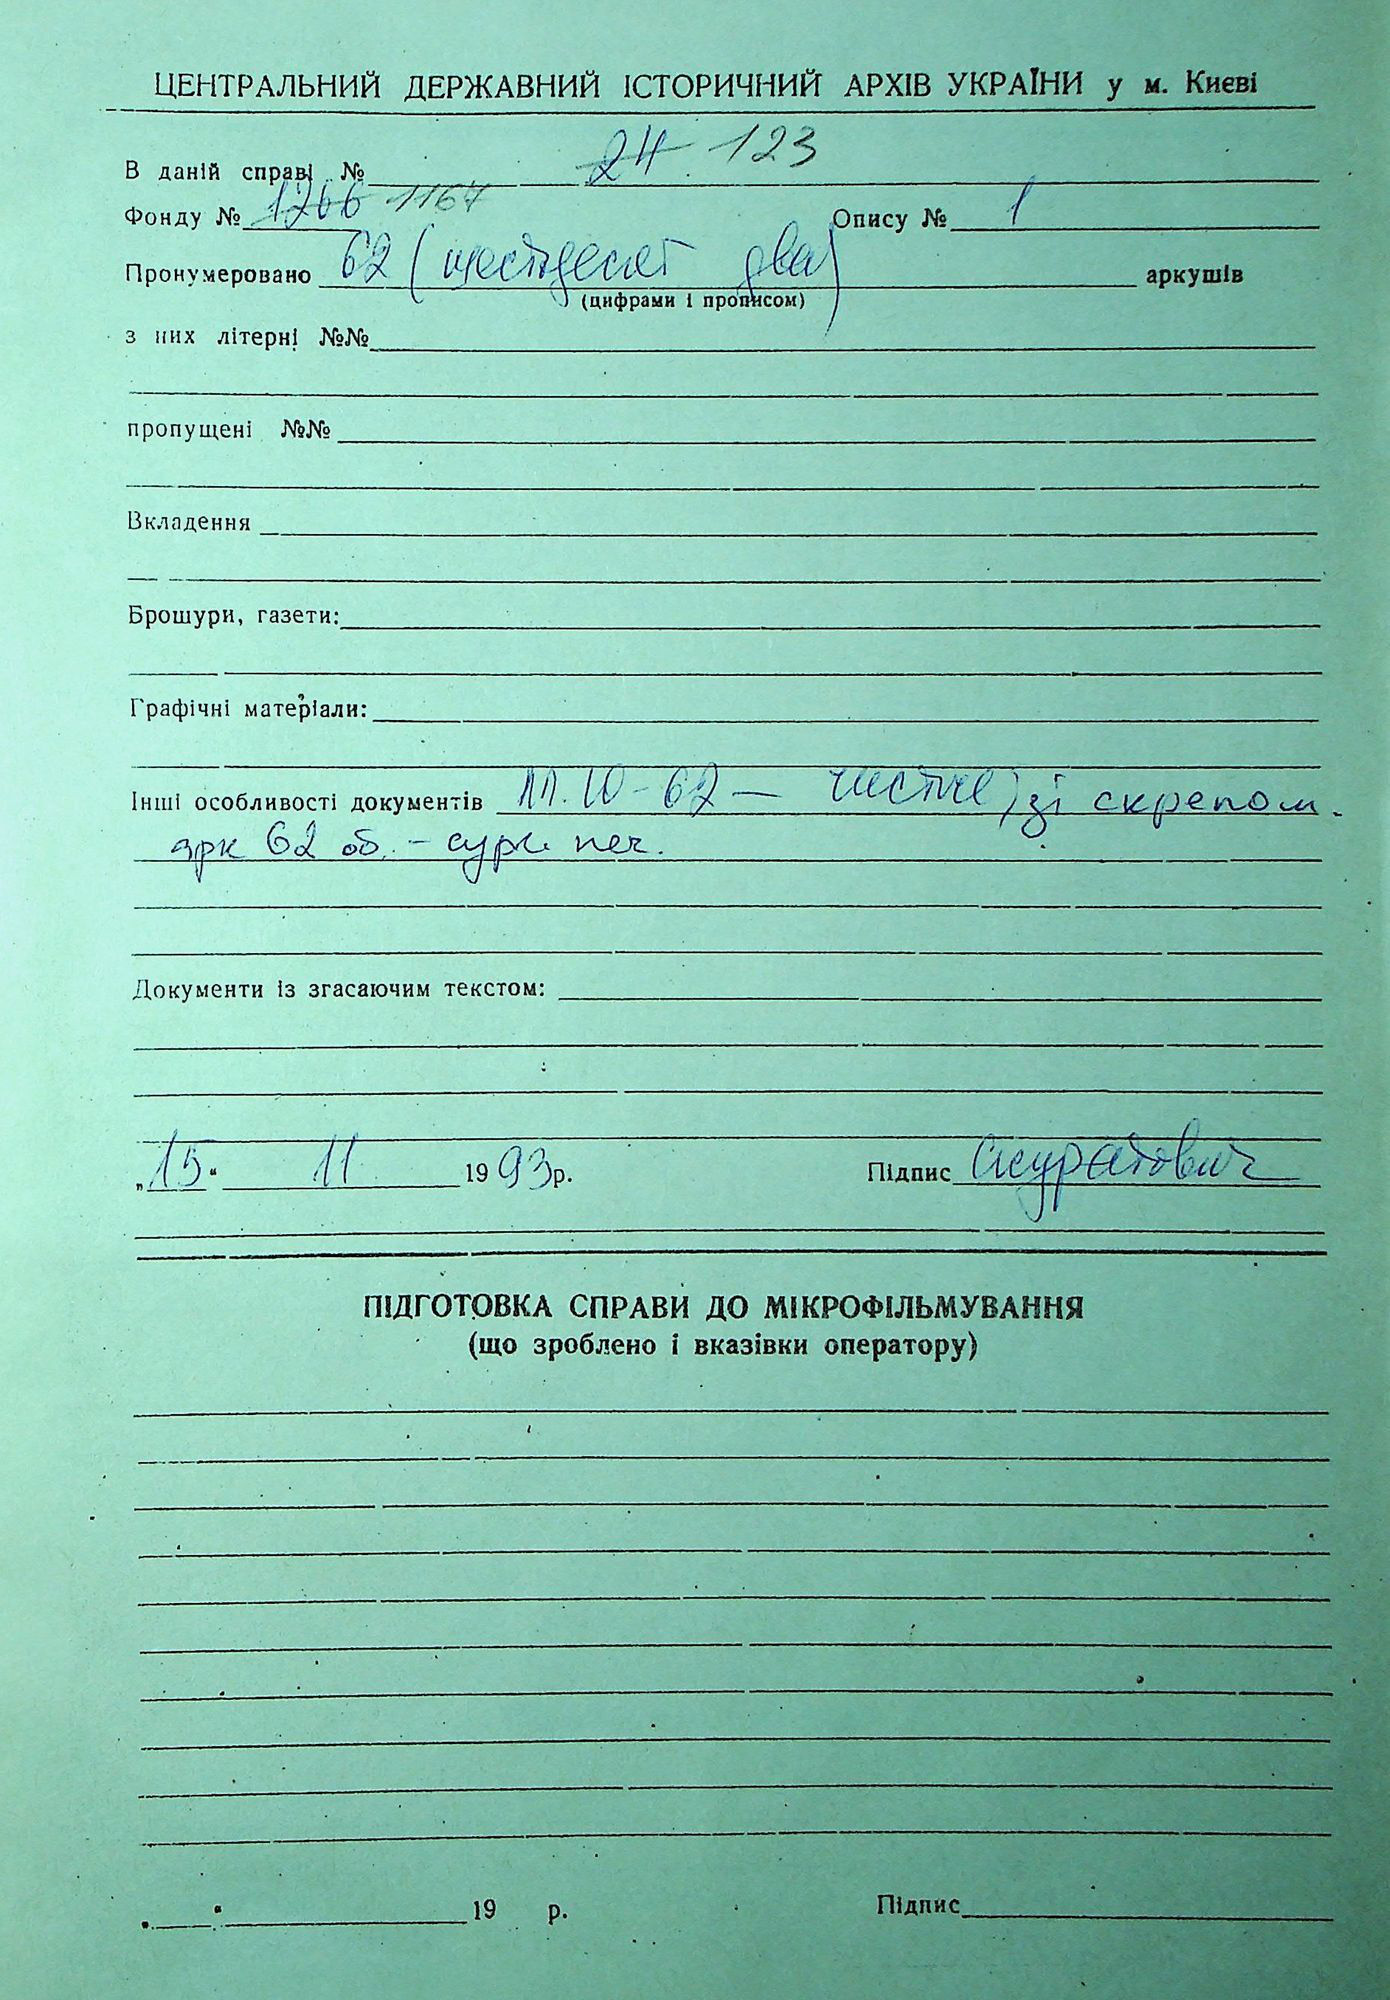 ЦЕНТРАЛЬНИЙ ДЕРЖАВНИЙ ІСТОРИЧНИЙ АРХІВ УКРАЇНИ у м. Києві
В даній справі № 24 123
Фонду № 1266 1167 Опису № 1
Пронумеровано 62 (шестдесят два) аркушів
(цифрами і прописом)
з них літерні №№
пропущені №№
Вкладення
Брошури, газети:
Графічні матеріали:
Інші особливості документів 10-62 – чистые, зі скрепом.
арк 62 об. – сург. печ.
Документи із згасаючим текстом:
„15“ 11 1993 р. Підпис Скуратович
ПІДГОТОВКА СПРАВИ ДО МІКРОФІЛЬМУВАННЯ
(що зроблено і вказівки оператору)
„ “ 19 р. Підпис